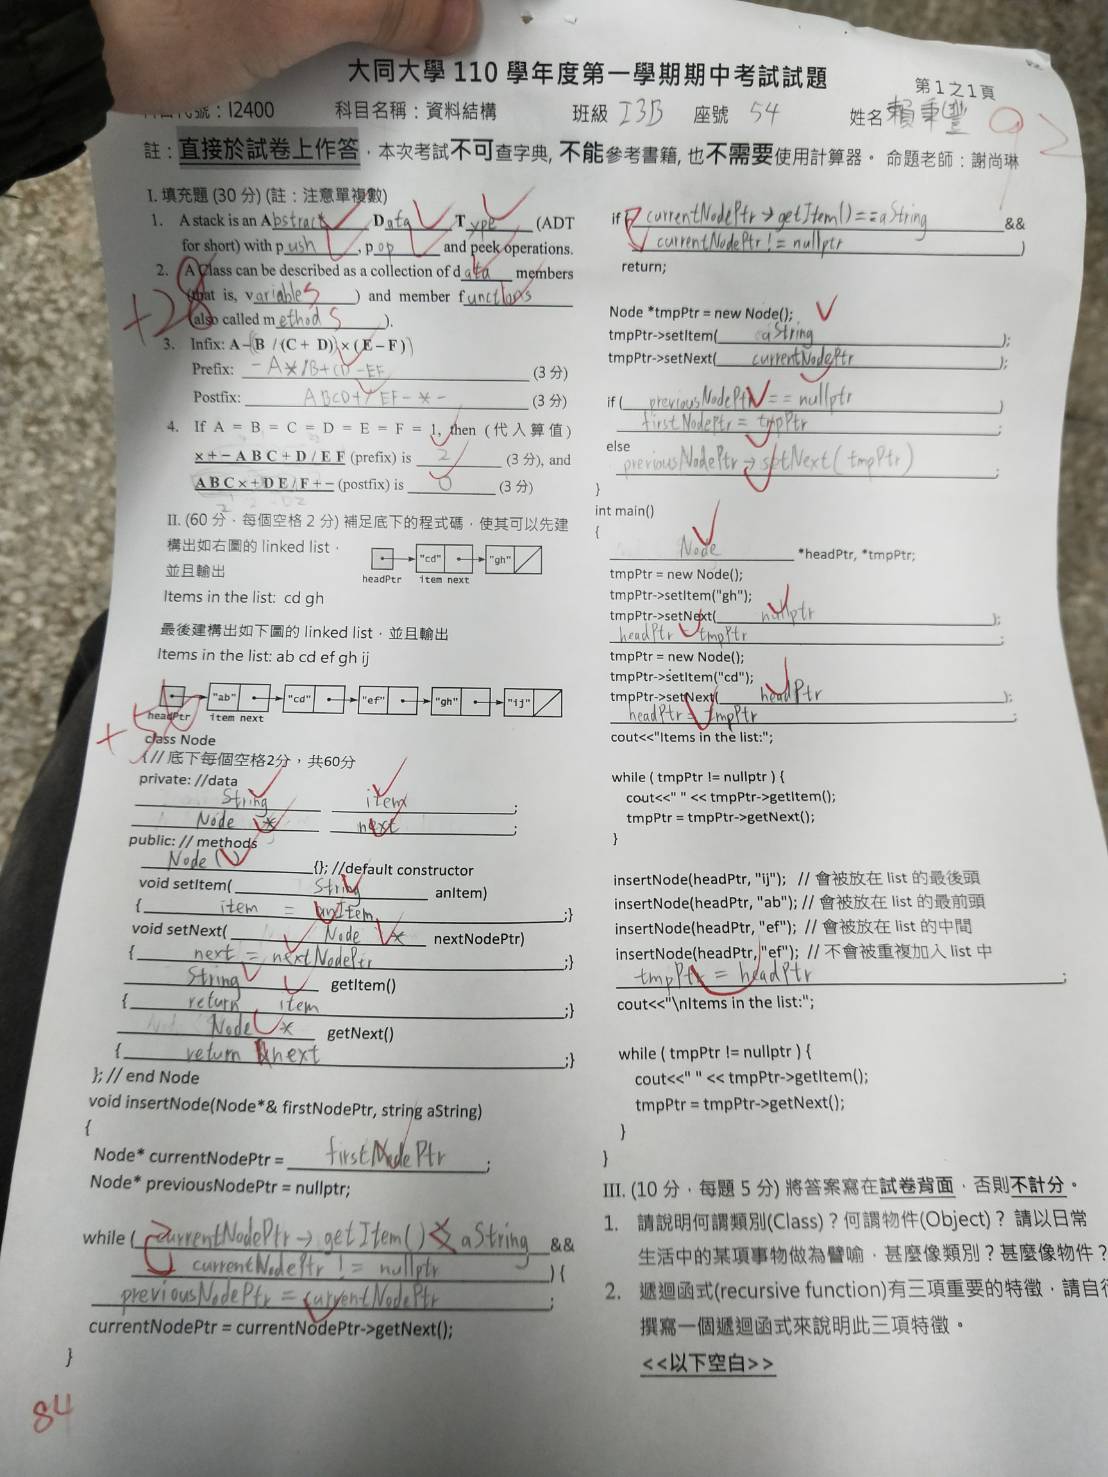 大同大學 110 學年度第一學期期中考試試題
第1之1頁
代號：I2400 科目名稱：資料結構 班級 I3B 座號 54 姓名 賴秉豐
92
註：直接於試卷上作答，本次考試不可查字典, 不能參考書籍, 也不需要使用計算器。 命題老師：謝尚琳
I. 填充題 (30 分) (註：注意單複數)
1. A stack is an Abstract Data Type (ADT
for short) with push, pop and peek operations.
2. A Class can be described as a collection of data members
(that is, variables) and member functions
(also called methods).
+28
3. Infix: A-(B /(C + D)) × (E – F)
Prefix: -A×/B+CD-EF (3 分)
Postfix: ABCD+/EF-×- (3 分)
4. If A = B = C = D = E = F = 1, then (代入算值)
× + – A B C + D / E F (prefix) is 2 (3 分), and
A B C × + D E / F + – (postfix) is 0 (3 分)
II. (60 分，每個空格 2 分) 補足底下的程式碼，使其可以先建
構出如右圖的 linked list，
並且輸出
"cd" "gh"
headPtr item next
Items in the list: cd gh
最後建構出如下圖的 linked list，並且輸出
Items in the list: ab cd ef gh ij
"ab" "cd" "ef" "gh" "ij"
headPtr item next
+56
class Node
{ // 底下每個空格2分，共60分
private: //data
String item ;
Node * next ;
public: // methods
Node() {}; //default constructor
void setItem( String anItem)
{ item = anItem ;}
void setNext( Node * nextNodePtr)
{ next = nextNodePtr ;}
String getItem()
{ return item ;}
Node * getNext()
{ return next ;}
}; // end Node
void insertNode(Node*& firstNodePtr, string aString)
{
Node* currentNodePtr = firstNodePtr ;
Node* previousNodePtr = nullptr;
while ( currentNodePtr → getItem() < aString &&
currentNodePtr != nullptr ) {
previousNodePtr = currentNodePtr ;
currentNodePtr = currentNodePtr->getNext();
}
84
if ( currentNodePtr → getItem() == aString &&
currentNodePtr != nullptr )
return;
Node *tmpPtr = new Node();
tmpPtr->setItem( aString );
tmpPtr->setNext( currentNodePtr );
if ( previousNodePtr == nullptr )
firstNodePtr = tmpPtr ;
else
previousNodePtr → setNext(tmpPtr) ;
}
int main()
{
Node *headPtr, *tmpPtr;
tmpPtr = new Node();
tmpPtr->setItem("gh");
tmpPtr->setNext( nullptr );
headPtr = tmpPtr ;
tmpPtr = new Node();
tmpPtr->setItem("cd");
tmpPtr->setNext( headPtr );
headPtr = tmpPtr ;
cout<<"Items in the list:";
while ( tmpPtr != nullptr ) {
cout<<" " << tmpPtr->getItem();
tmpPtr = tmpPtr->getNext();
}
insertNode(headPtr, "ij"); // 會被放在 list 的最後頭
insertNode(headPtr, "ab"); // 會被放在 list 的最前頭
insertNode(headPtr, "ef"); // 會被放在 list 的中間
insertNode(headPtr, "ef"); // 不會被重複加入 list 中
tmpPtr = headPtr ;
cout<<"\nItems in the list:";
while ( tmpPtr != nullptr ) {
cout<<" " << tmpPtr->getItem();
tmpPtr = tmpPtr->getNext();
}
}
III. (10 分，每題 5 分) 將答案寫在試卷背面，否則不計分。
1. 請說明何謂類別(Class)？何謂物件(Object)？請以日常
生活中的某項事物做為譬喻，甚麼像類別？甚麼像物件？
2. 遞迴函式(recursive function)有三項重要的特徵，請自行
撰寫一個遞迴函式來說明此三項特徵。
<<以下空白>>